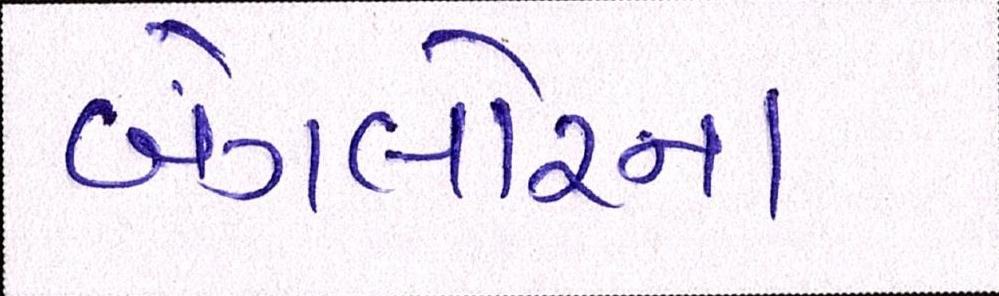 બેંગલોરના